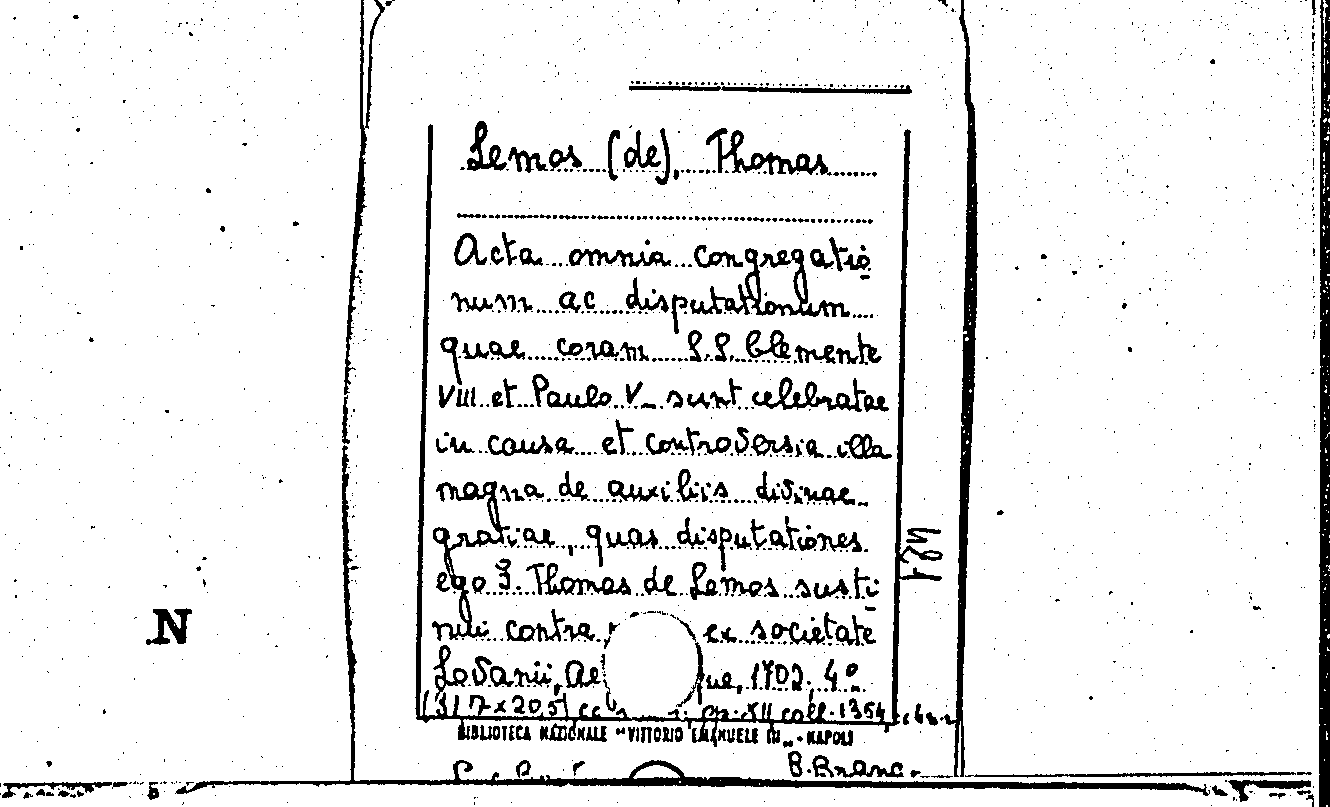 Lemos (de), Thomas
Acta omnia congregatio
num ac disputationum
quae coram S.S. Clemente
VIII et Paulo V sunt celebratae
in causa et controversia illa
magna de auxiliis divinae
gratiae, quas disputationes
ego F. Thomas de Lemos susti
nui contra ex societate
Lovanii, 1702, 4°
(31,7 x 20,5) pp. XII coll. 1354
BIBLIOTECA NAZIONALE "VITTORIO EMANUELE III" - NAPOLI
B. Branc.
N